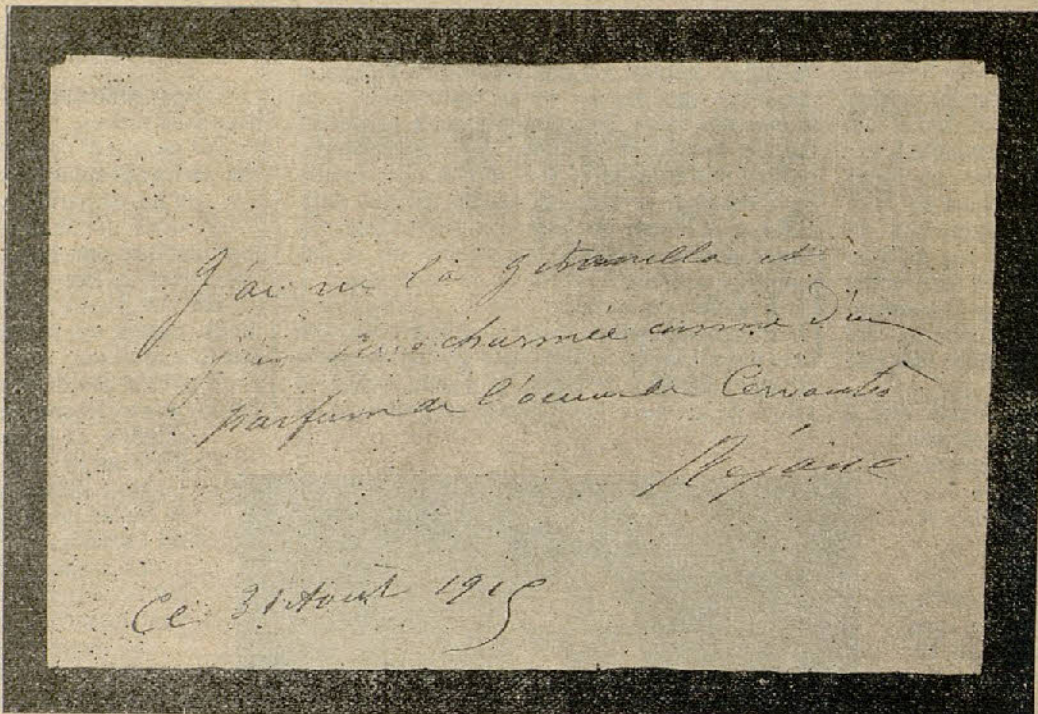 J'ai vu la gitanilla et
j'en suis charmée comme d'un
parfum de l'oeuvre de Cervantes
Réjane
Ce 31 Aout 1915